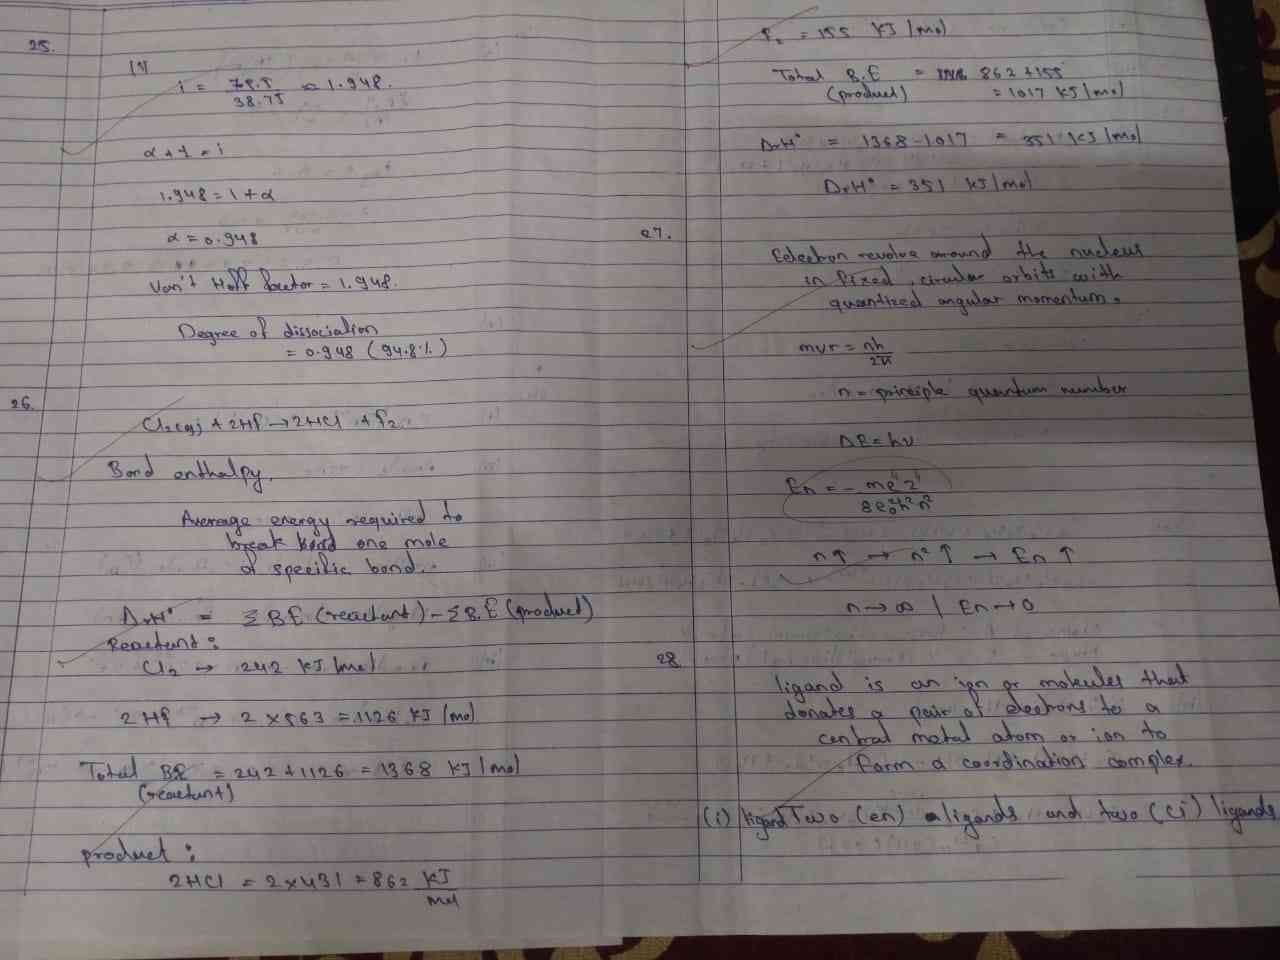 25.
(ii)
i = 78.5 / 38.75 = 1.948.
α + 1 = i
1.948 = 1 + α
α = 0.948
Van't Hoff factor = 1.948.
Degree of dissociation
= 0.948 (94.8%)
26.
Cl₂(g) + 2HF → 2HCl + F₂
Bond enthalpy.
Average energy required to
break bond one mole
of specific bond.
ΔrH° = ΣBE (reactant) - ΣB.E (product)
Reactant:
Cl₂ → 242 KJ/mol
2HF → 2 × 563 = 1126 KJ/mol
Total BE = 242 + 1126 = 1368 KJ/mol
(reactant)
product:
2HCl = 2 × 431 = 862 KJ/mol
F₂ = 155 KJ/mol
Total B.E = 862 + 155
(product) = 1017 KJ/mol
ΔrH° = 1368 - 1017 = 351 KJ/mol
ΔrH° = 351 KJ/mol
27.
Eelectron revolve around the nucleus
in fixed, circular orbits with
quantized angular momentum.
mvr = nh/2π
n = principle quantum number
ΔE = hν
En = - me⁴z² / 8ε₀²h²n²
n↑ → n²↑ → En↑
n → ∞ | En → 0
28
ligand is an ion or molecules that
donates a pair of electrons to a
central metal atom or ion to
form a coordination complex.
(i) ligand Two (en) ligands and two (Cl) ligands